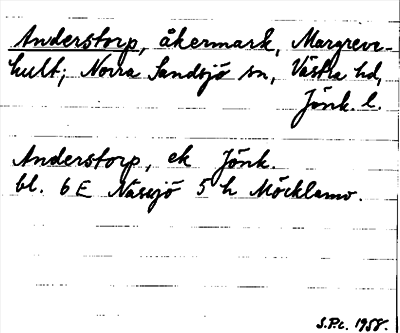 Anderstorp, åkermark, Margreve-
hult; Norra Sandsjö sn, Västra hd,
Jönk. l.
Anderstorp, ek Jönk.
bl. 6 E Nässjö 5 h Möcklamo.
S.P.c. 1958.